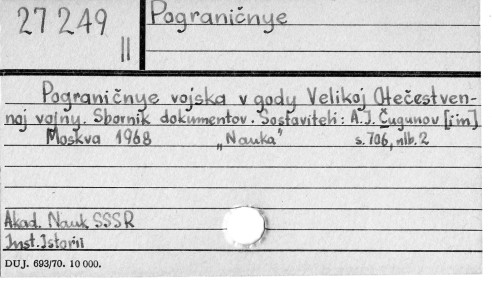 27 249
II
Pograničnye
Pograničnye vojska v gody Velikoj Otečestven-
noj vojny. Sbornik dokumentov. Sostaviteli: A.I. Čugunov [i in]
Moskva 1968 „Nauka" s. 706, nlb. 2
Akad. Nauk SSSR
Inst. Istorii
DUJ. 693/70. 10 000.